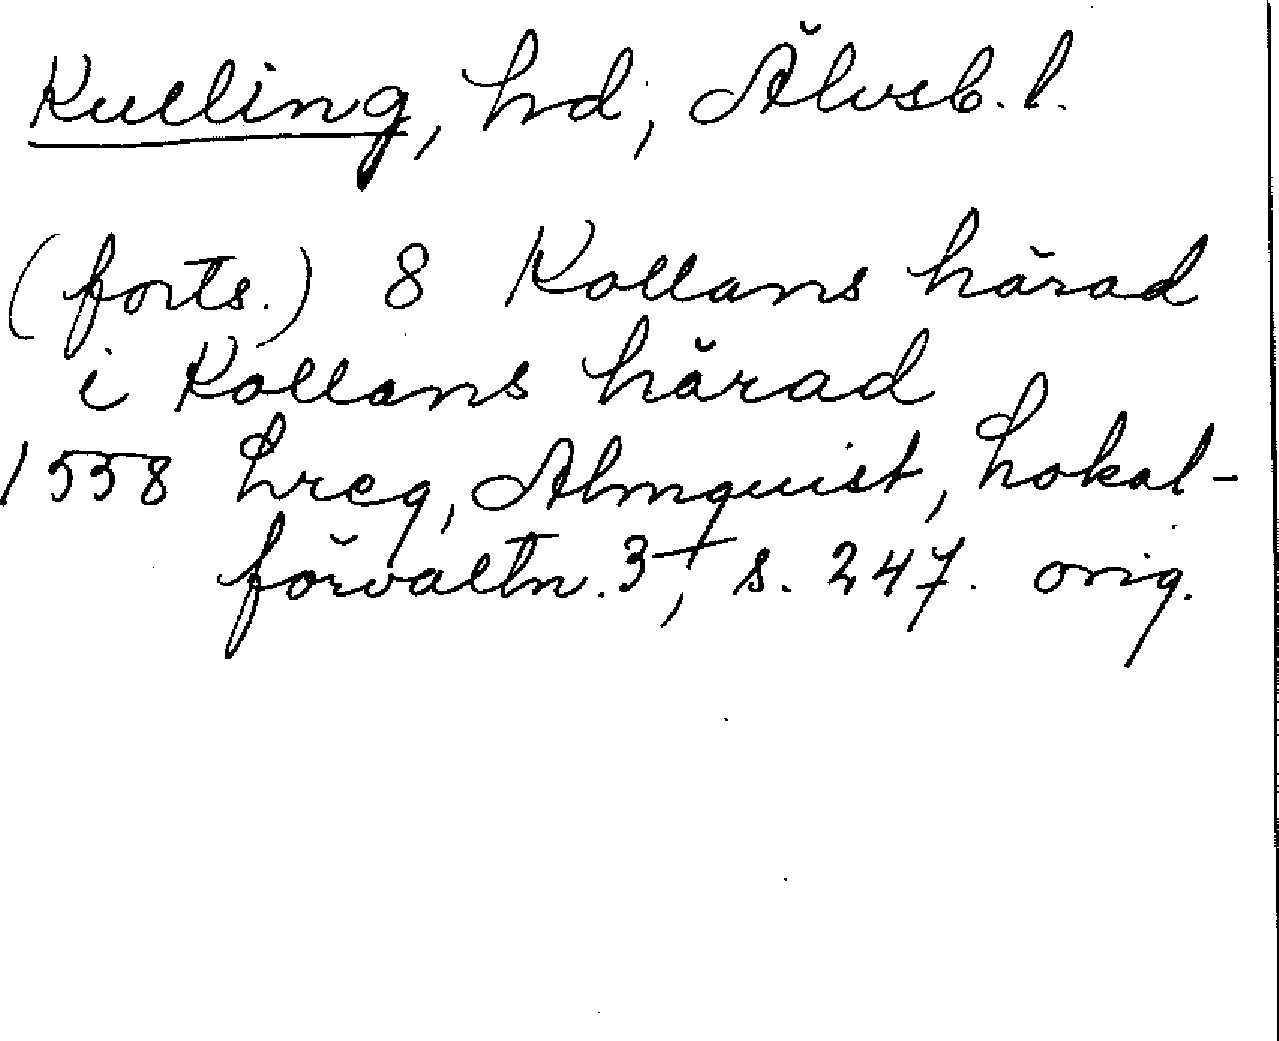 Kulling, hd, Älvsb. l.
(forts.) 8 Kollans härad
i Kollans härad
1558 Lreg, Almquist, Lokal-
förvaltn. 3, s. 247. orig.